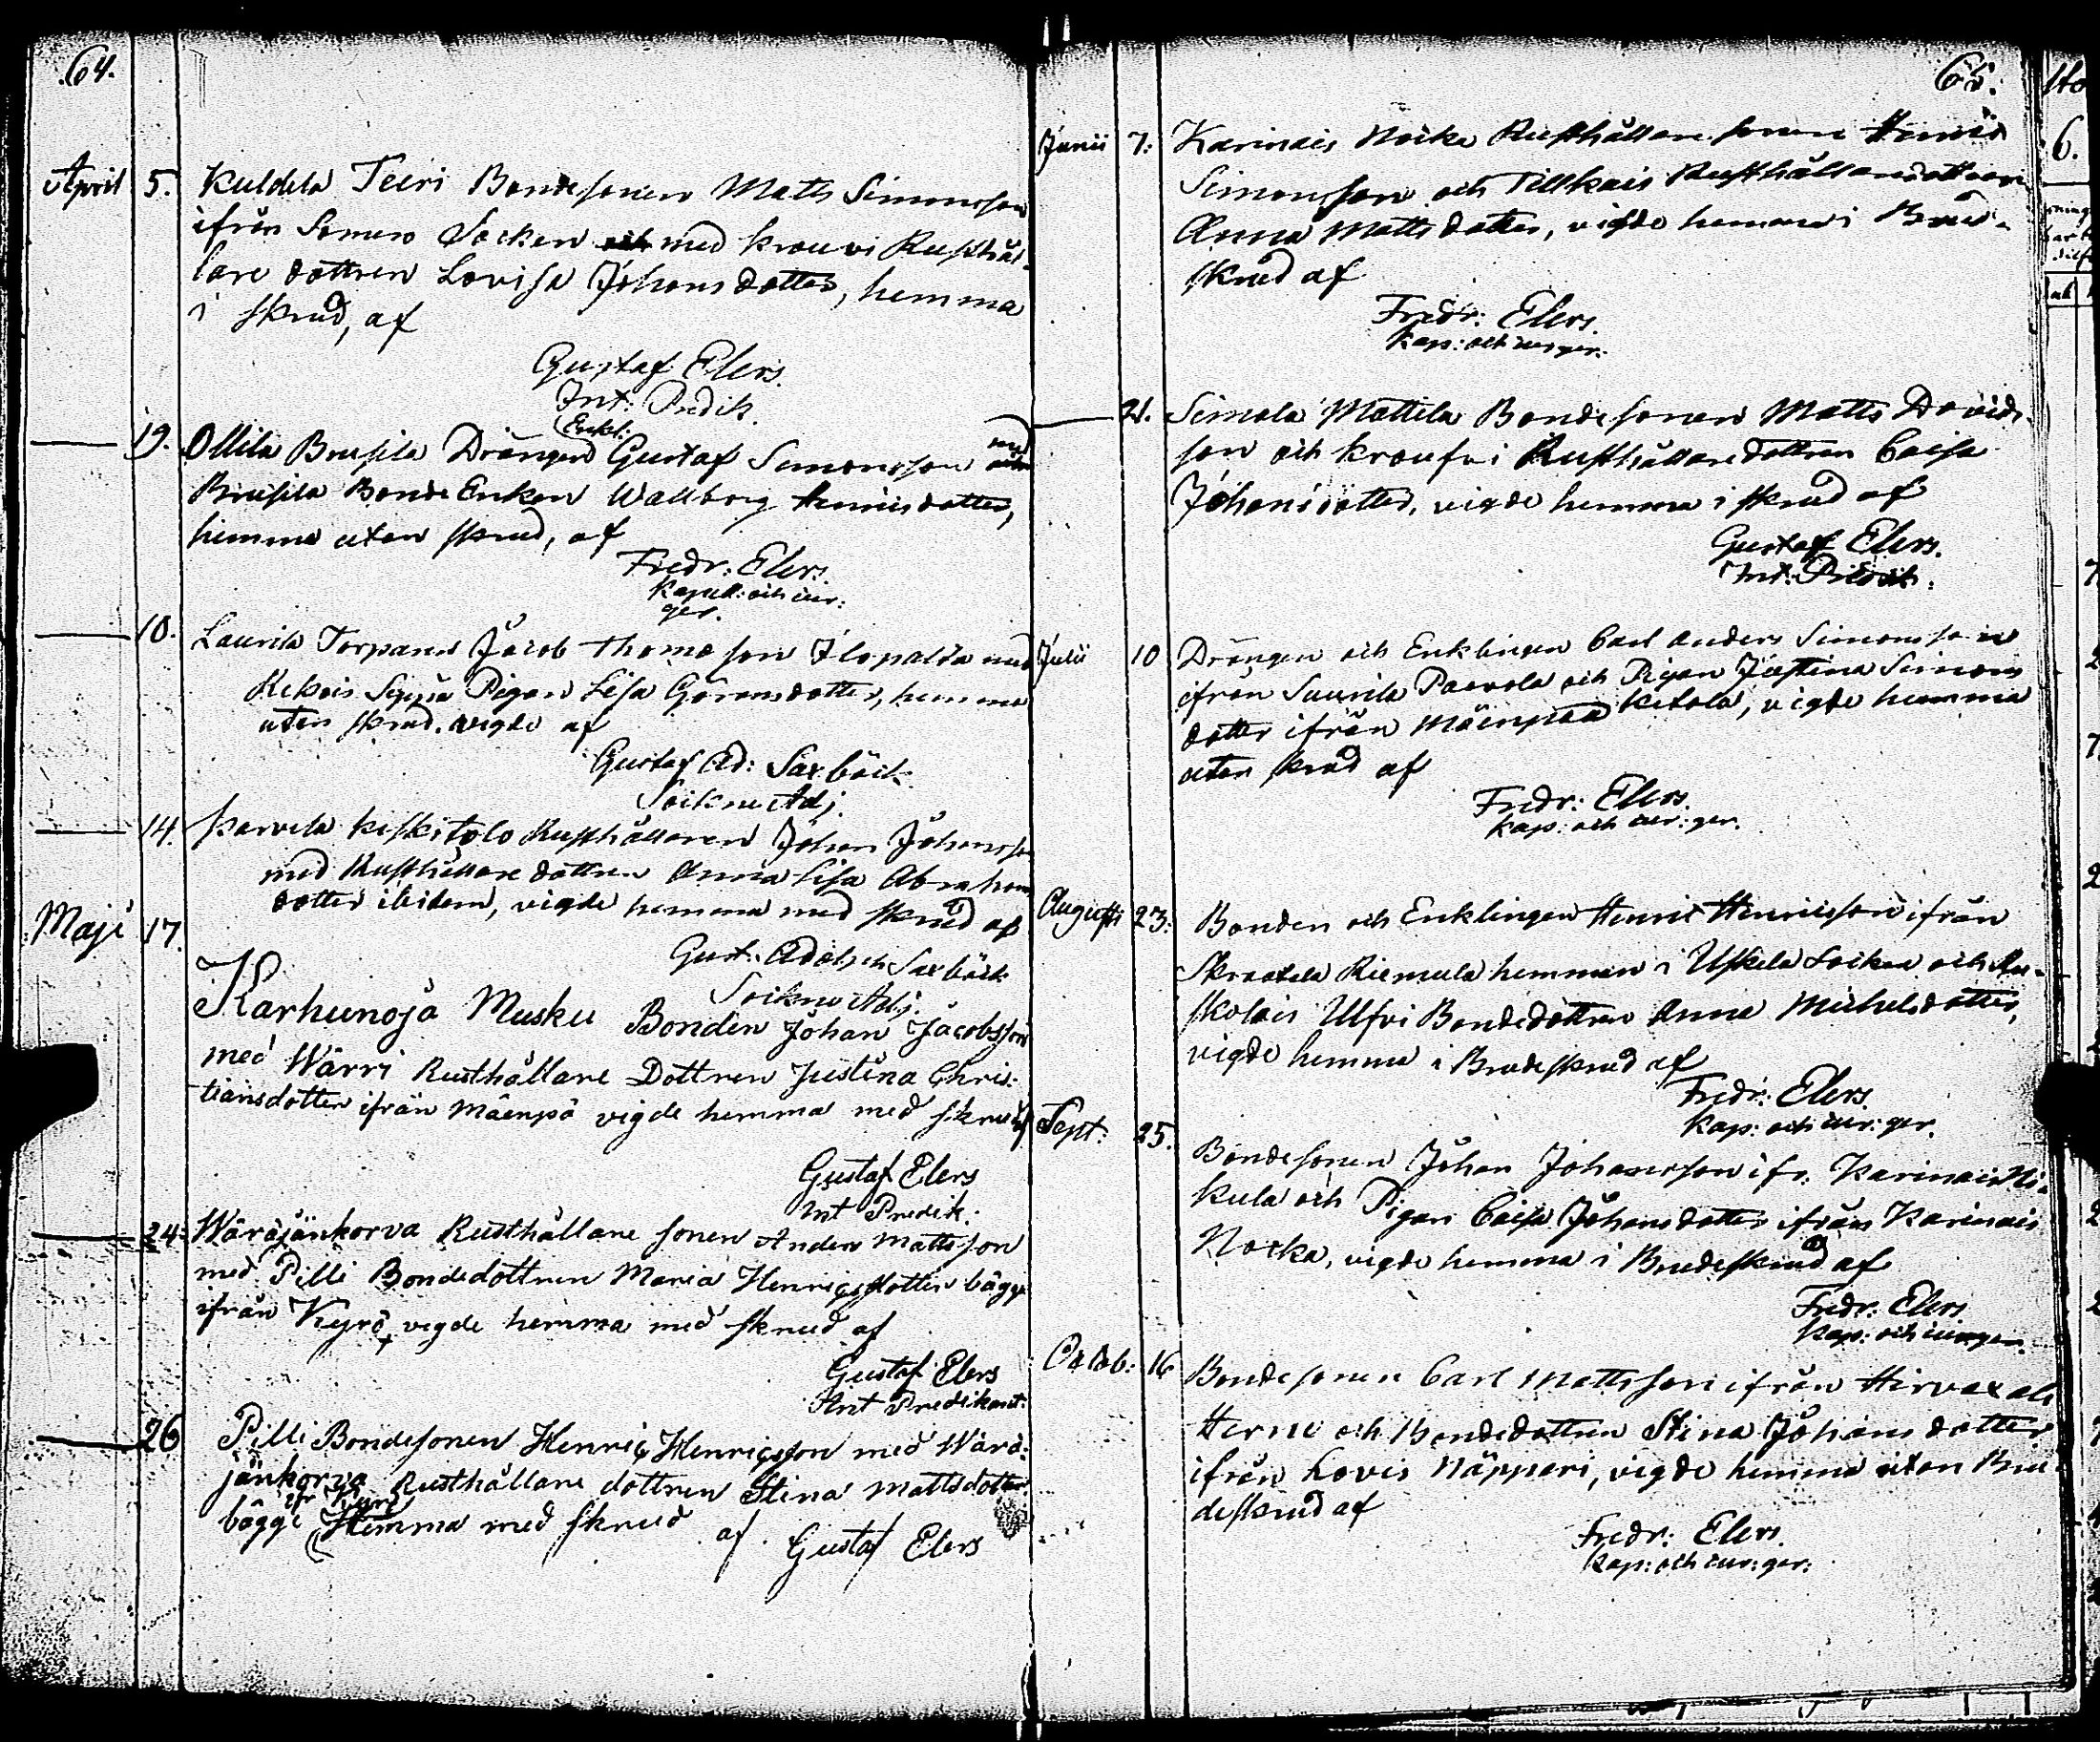 64.
April 5. Kuldela Teeri Bondesonen Matts Simonsson
ifrån Somero Socken med krouvi Rusthål-
lare dottren Lovisa Johansdotter, hemma
i skrud, af
Gustaf Elers.
Int: Predik.
Enkl: med
19. Ollila Brusila Drängen Gustaf Simonsson
Brusila Bonde Enkan Wallborg Henricsdotter,
hemma utan skrud, af
Fredr: Elers.
Kapell: och cur:
ger.
10. Laurila Torparen Jacob Thomasson med
Kekois Seppä Pigan Lisa Göransdotter, hemma
utan skrud. vigde af
Gustaf Ad: Saxbäck
Sockne Adj.
14. Karvela Keskitalo Rusthållaren Johan Johansson
med Rusthållare dottren Anna Lisa Abrahams
dotter ibidem, vigde hemma med skrud af
Gust: Adolph Saxbäck
Sockne Adj.
Maji 17. Karhunoja Musku Bonden Johan Jacobsson
med Wärri Rusthållare Dottren Justina Chris-
tiansdotter ifrån Mäenpä vigde hemma med skrud af
Gustaf Elers
Int Predik.
24. Wäräjänkorva Rusthållare sonen Anders Mattsson
med Pilli Bondedottren Maria Henrigsdotter bägge
ifrån Kyrö, vigde hemma med skrud af
Gustaf Elers
Int Predikant.
26 Pilli Bondesonen Henrig Henrigsson med Wärä-
jänkorva Rusthållare dottren Stina Mattsdotter
ifr Kyrö
bägge Hemma med skrud af Gustaf Elers
65.
Junii 7. Karinais Nocka Rusthållare sonen Henric
Simonsson och Tillkais Rusthållaredottren
Anna Mattsdotter, vigde hemma i Brud-
skrud af
Fredr: Elers.
Kap: och cur ger.
21. Simola Mattila Bondesonen Matts Davids-
son och kroufvi Rusthållaredottren Caisa
Johansdotter, vigde hemma i skrud af
Gustaf Elers.
Int: Predik.
Julii 10 Drängen och Enklingen Carl Anders Simonsson
ifrån Suurila Paavola och Pigan Justina Simons
dotter ifrån Mäenpää Ketola, vigde hemma
utan skrud af
Fredr: Elers.
Kap: och cur: ger.
Augusti 23. Bonden och Enklingen Henric Henricsson ifrån
Riemula hemman i Uskela Socken och Au-
skolais Ulfvi Bondedottren Anna Michelsdotter,
vigde hemma i Brudeskrud af
Fredr: Elers.
Kap: och cur: ger.
Sept: 25. Bondesonen Johan Johansson ifr. Karinais Ni-
kula och Pigan Caisa Johansdotter ifrån Karinais
Nocka, vigde hemma i Brudeskrud af
Fredr: Elers.
Kap: och cur ger.
Octob: 16 Bondesonen Carl Mattsson ifrån
Herni och Bondedottren Stina Johansdotter
ifrån Lovis Näppari, vigde hemma utan Bru-
deskrud af
Fredr: Elers.
Kap: och cur: ger: